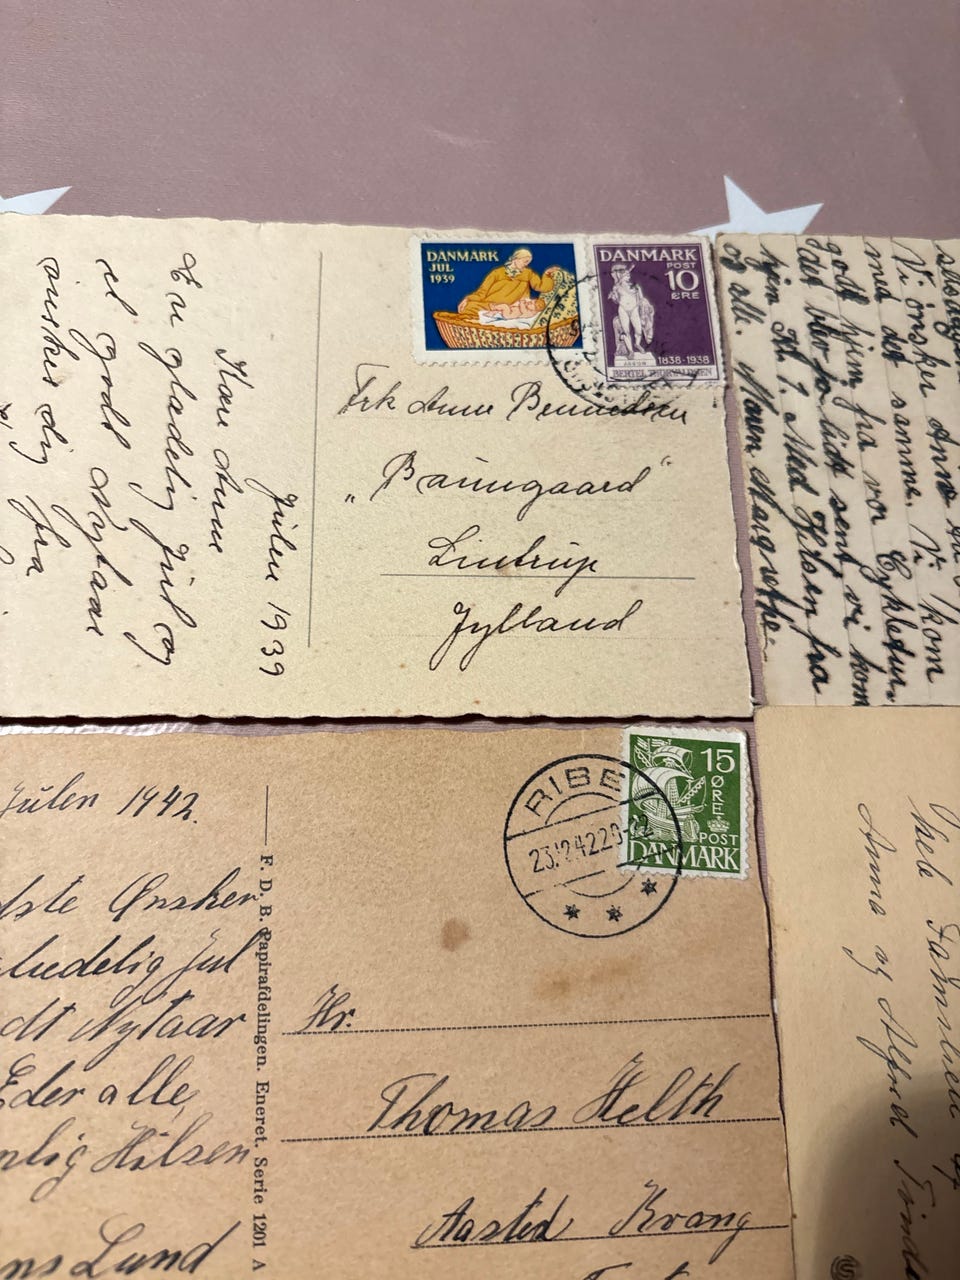 DANMARK
JUL
1939
DANMARK
POST
10
ØRE
1838-1938
BERTEL THORVALDSEN
Julen 1939
Kære Anne
En glædelig Jul og
et godt Nytaar
ønskes dig fra
Frk Anne Bennedsen
"Baungaard"
Lintrup
Jylland
Vi önsker Anne
med det samme. Vi kom
godt hjem fra vor Cykletur,
det blev jo lidt sent vi kom
hjem Kl. 2. Med Hilsen fra
og alle. Maren Margrethe
Julen 1942.
Ønsker
Jul
Nytaar
Eder alle,
Hilsen
Lund
F. D. B. Papirafdelingen. Eneret. Serie 1201 A
RIBE
23.12.42
15
ØRE
POST
DANMARK
Hr.
Thomas Helth
Aasted Kvang
Anna og Alfred